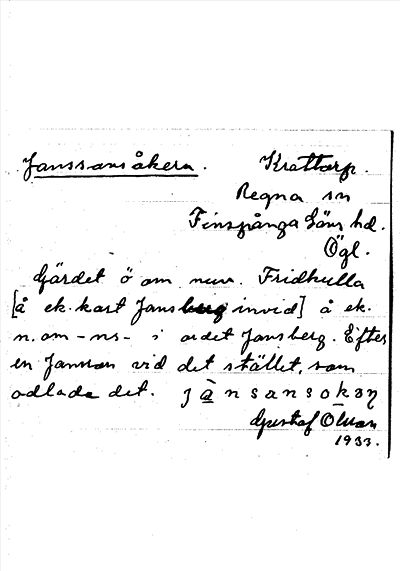 Janssans åkern. Krattorp.
Regna sn
Finspånga läns hd.
Ögl.
Gärdet ö om nuv. Fridhulla
[å ek. kart Jansberg invid] å ek.
n. om -ns- i ordet Jansberg. Efter
en Jansson vid det stället, som
odlade det.
Gustaf
1933.